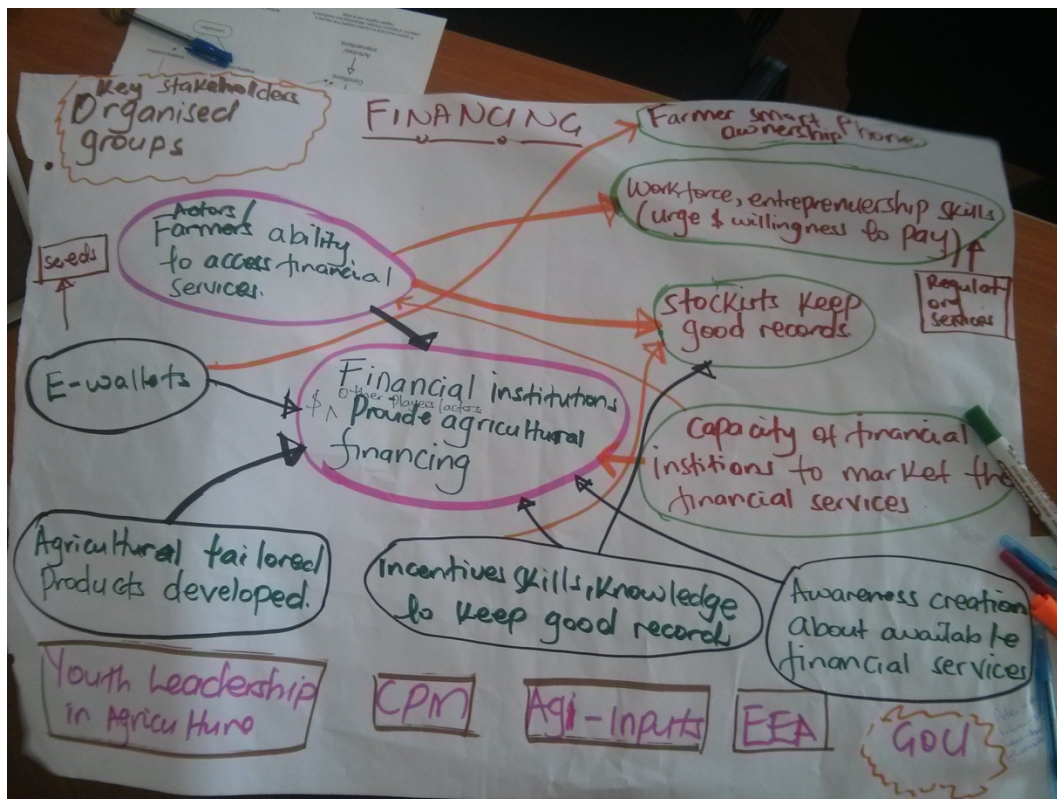 Key stakeholders
Organised
groups
FINANCING
Farmer smart phone
ownership
Workforce, entreprenuership skills
(urge $ willingness to pay)
Actors/
Farmers ability
to access financial
services.
seeds
Regulat
ory
services
Stockists keep
good records
E-wallets
Financial institutions
$ other players/actors
Provide agricultural
financing
capacity of financial
institions to market the
financial services
Agricultural tailored
Products developed.
Incentives skills, knowledge
to keep good record
Awareness creation
about available
financial services
Youth Leadership
in Agriculture
CPM
Agi-Inputs
EEA
GOU
Interventions
Conditions